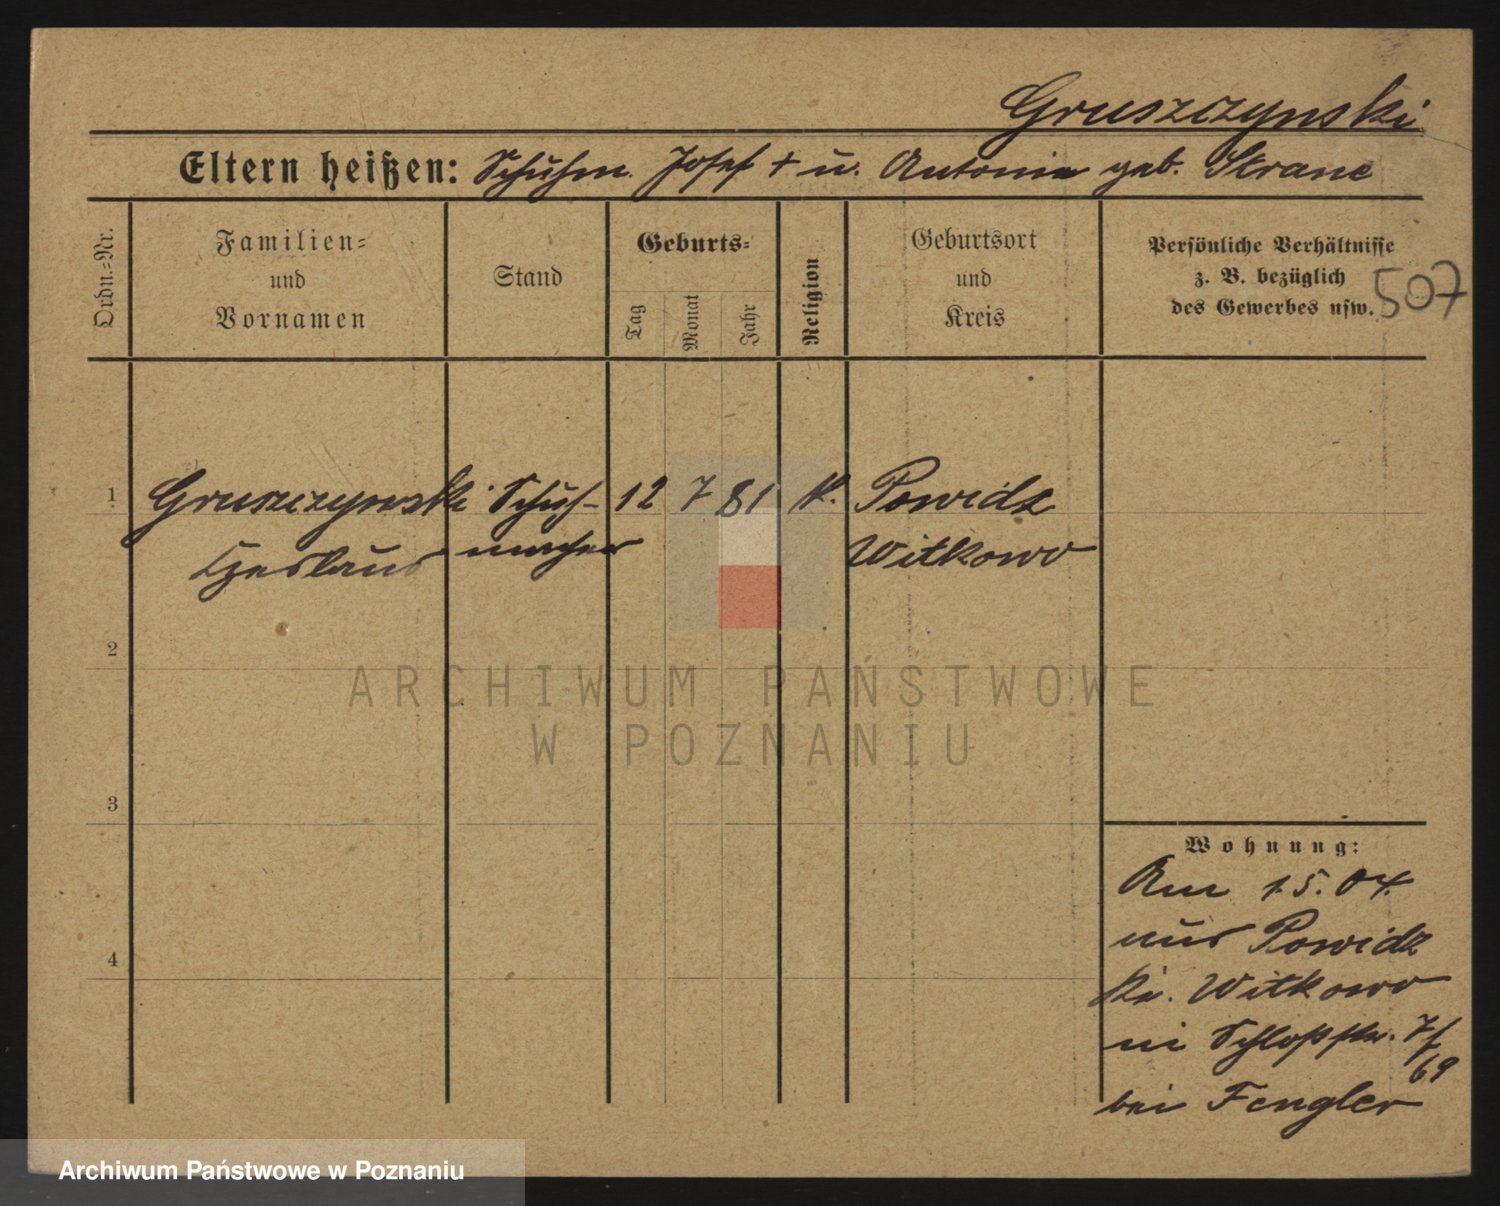 Gruszczynski
Eltern heißen: Schuhm. Josef † u. Antonie geb. Strane
Ordn.-Nr.
Familien-
und
Vornamen
Stand
Geburts-
Tag
Monat
Jahr
Religion
Geburtsort
und
Kreis
Persönliche Verhältnisse
z. B. bezüglich
des Gewerbes usw.
507
1 Gruszczynski Schuh- 12 7 81 k. Powidz
Czeslaus macher Witkowo
2
ARCHIWUM PAŃSTWOWE
W POZNANIU
3
Wohnung:
Am 1.5.04.
aus Powidz
Kr. Witkowo
Schloßstr. 7/
69
bei Fengler
4
Archiwum Państwowe w Poznaniu